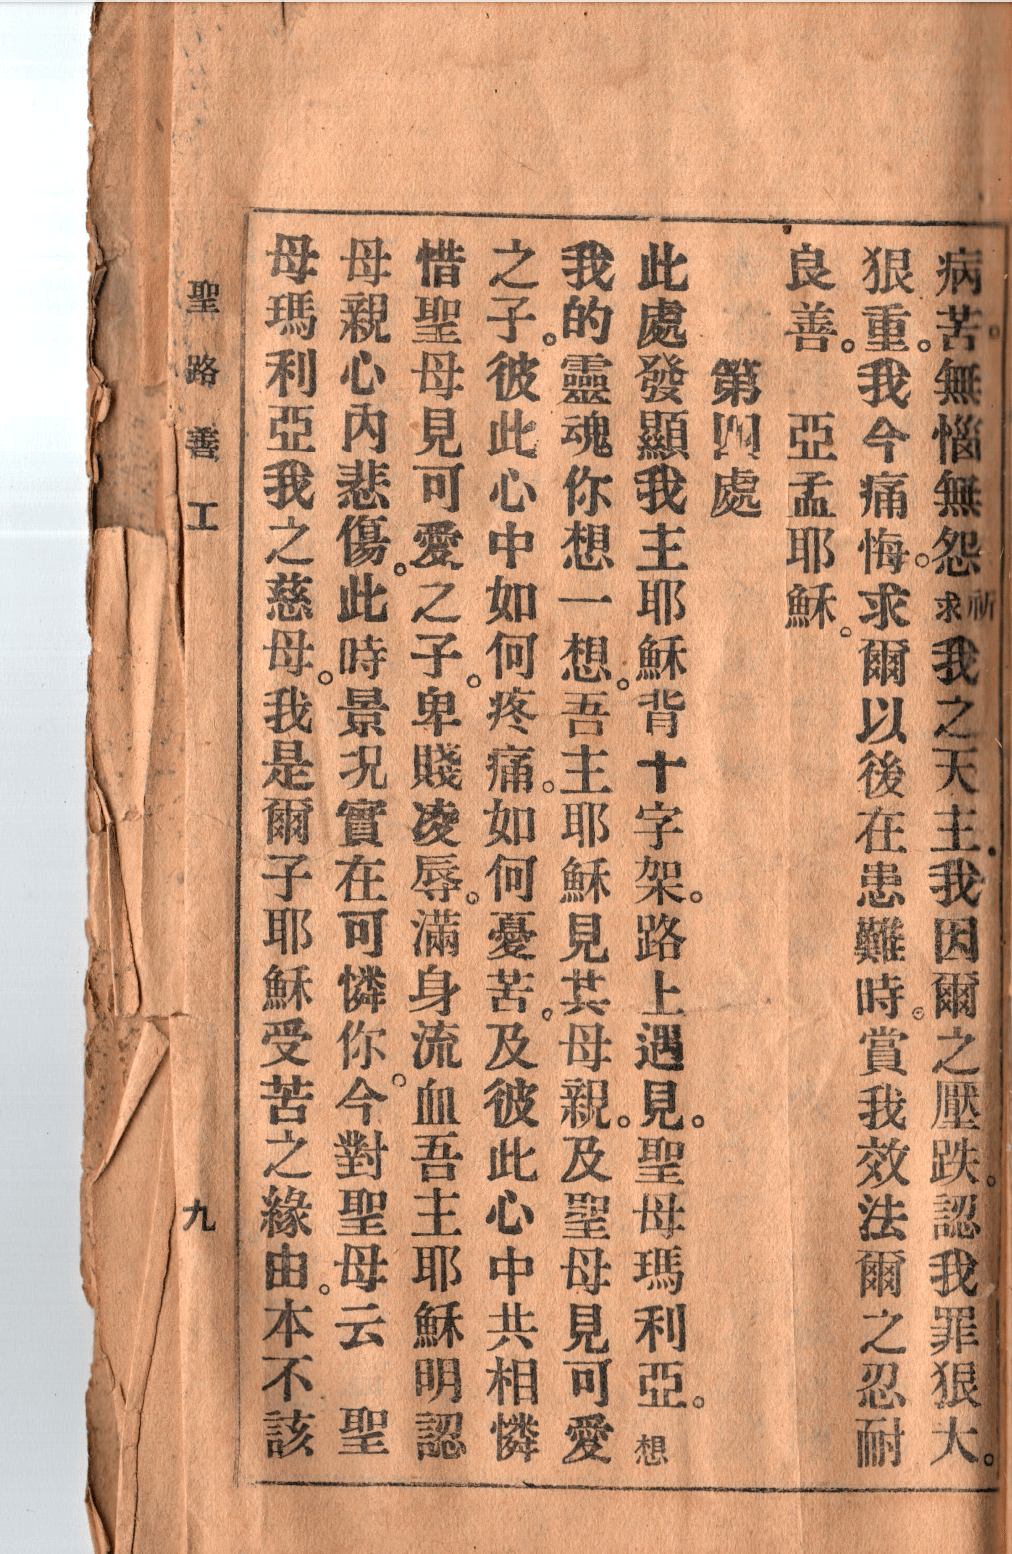 病苦。無惱無怨祈求我之天主我因爾之壓跌。認我罪狠大。
狠重。我今痛悔。求爾以後在患難時。賞我效法爾之忍耐
良善。 亞孟耶穌。
第四處
此處發顯我主耶穌背十字架。路上遇見。聖母瑪利亞。想
我的靈魂你想一想。吾主耶穌見其母親。及聖母見可愛
之子。彼此心中如何疼痛。如何憂苦。及彼此心中共相憐
惜聖母見可愛之子。卑賤凌辱。滿身流血吾主耶穌明認
母親心內悲傷。此時景况實在可憐。你今對聖母云 聖
母瑪利亞我之慈母。我是爾子耶穌受苦之緣由。本不該
聖路善工
九